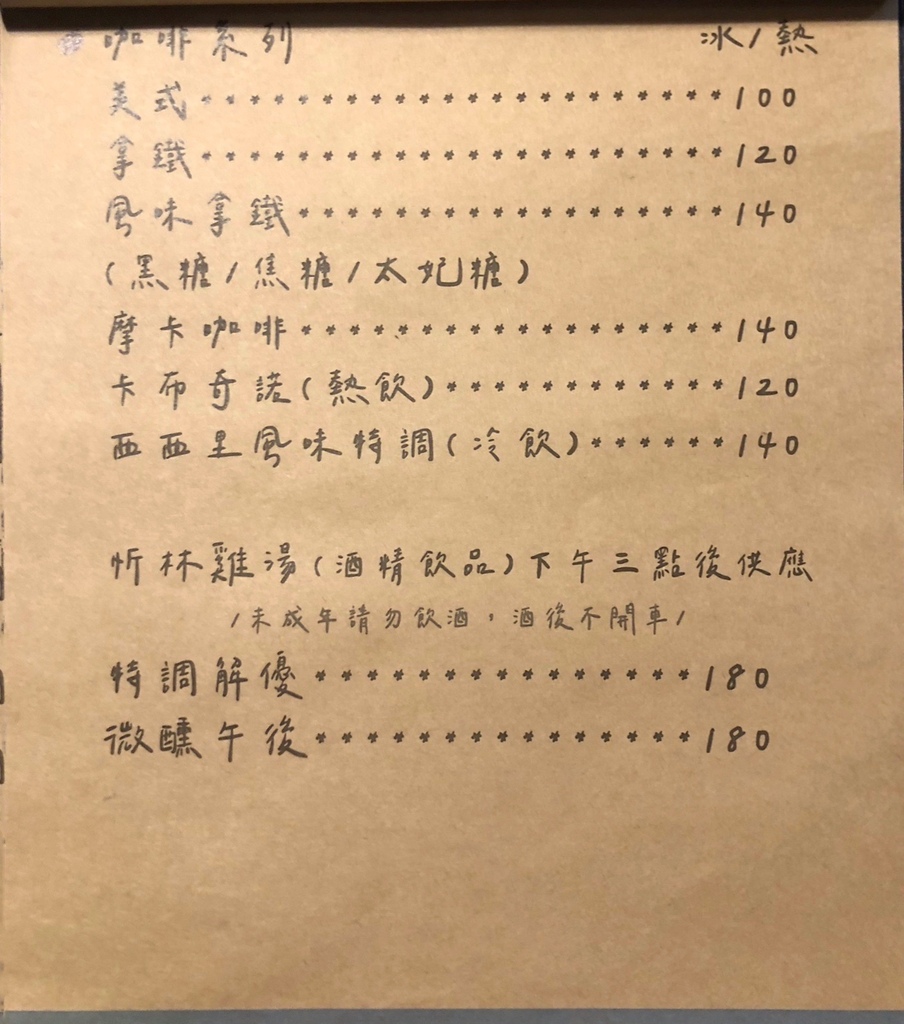 咖啡系列 冰/熱
美式**********************100
拿鐵**********************120
風味拿鐵******************140
(黑糖/焦糖/太妃糖)
摩卡咖啡******************140
卡布奇諾(熱飲)************120
西西里風味特調(冷飲)******140
忻林雞湯(酒精飲品)下午三點後供應
/未成年請勿飲酒,酒後不開車/
特調解優****************180
微醺午後****************180